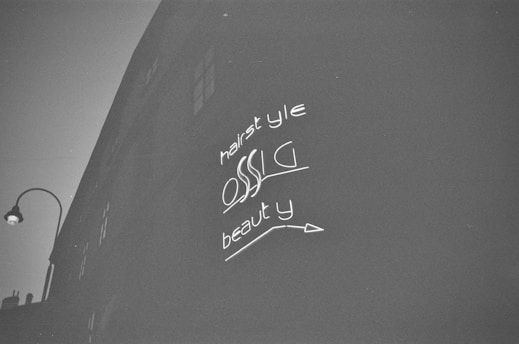 hairstyle
OSSIG
beauty